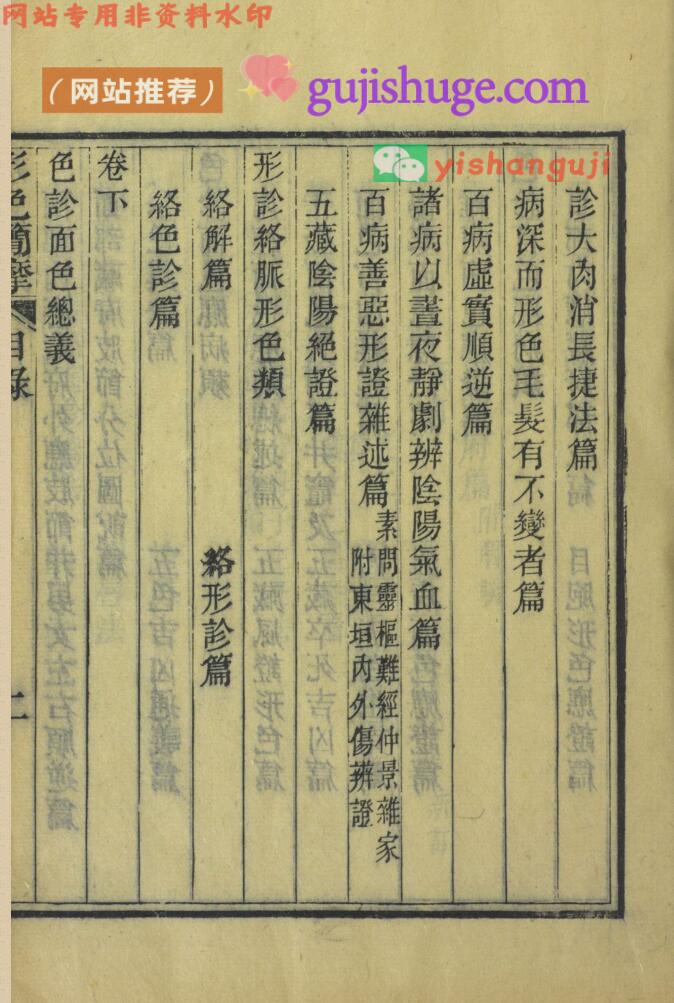 网站专用非资料水印
（网站推荐）
gujishuge.com
yishanguji
診大肉消長捷法篇
病深而形色毛髮有不變者篇
百病虛實順逆篇
諸病以晝夜靜劇辨陰陽氣血篇
百病善惡形證雜述篇 素問靈樞難經仲景雜家
附東垣內外傷辨證
五藏陰陽絕證篇
形診絡脈形色類
絡解篇 絡形診篇
絡色診篇
卷下
色診面色總義
形色簡摩 目錄 二